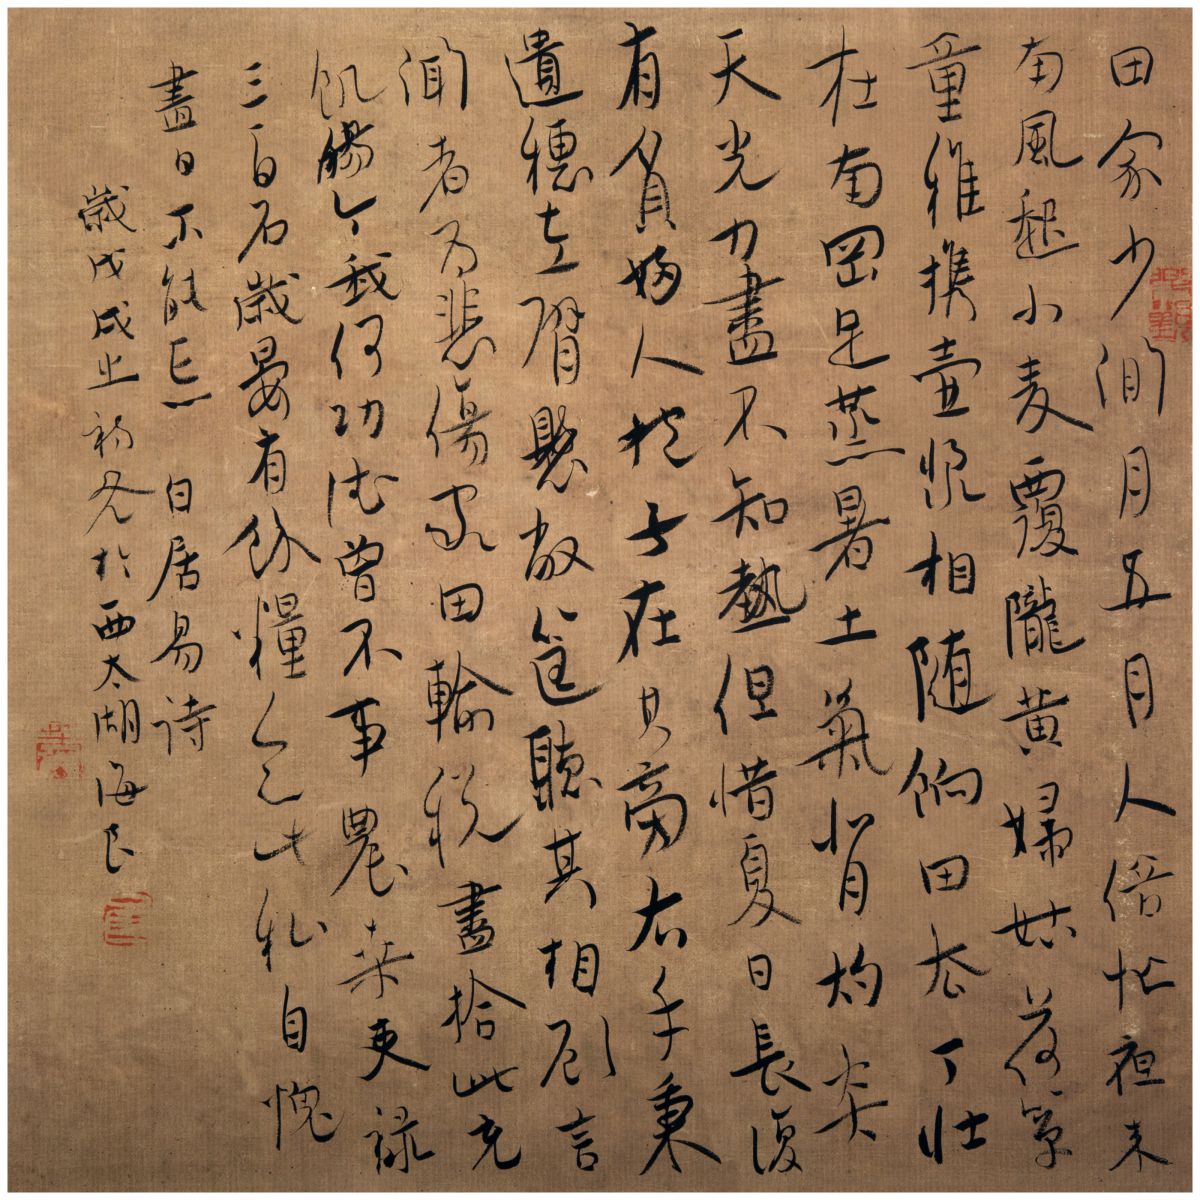 田家少閒月五月人倍忙夜来
南風起小麦覆隴黄婦姑荷箪
童稚携壺漿相随餉田去丁壮
在南岡足蒸暑土氣背灼炎
天光力盡不知熱但惜夏日長復
有貧婦人抱子在其旁右手秉
遺穗左臂懸敝筐聽其相顧言
聞者为悲傷家田輸税盡拾此充
飢腸今我何功德曾不事農桑吏禄
三百石歲晏有餘糧念此私自愧
盡日不能忘 白居易詩
歲戊戌之初冬於西太湖海民